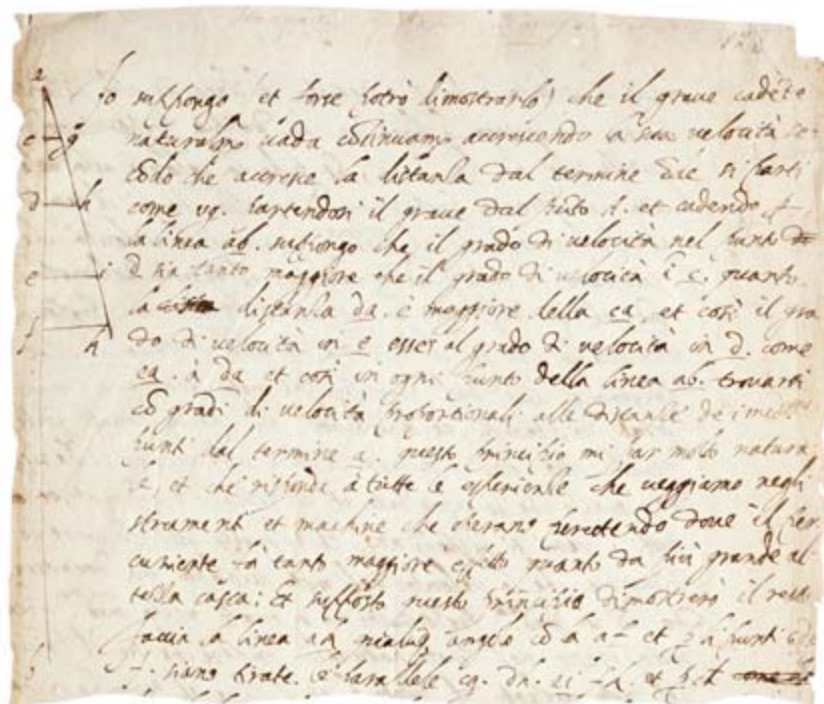 128
a
Io suppongo (et forse potrò dimostrarlo) che il grave cadēte
c g naturalm. vada cōtinuam. accrescendo la sua velocità se
cōdo che accresce la distanza dal termine onde si partì
d h come v.g. partendosi il grave dal pūto a. et cadendo p
la linea ab. suppongo che il grado di velocità nel punto
e i d sia tanto maggiore che il grado di velocità ī c. quanto
la distanza da. è maggiore della ca. et così il gra
f k do di velocità in e esser al grado di velocità in d. come
ea. à da et così in ogni punto della linea ab. trovarsi
cō gradi di velocità proportionali alle distanze de i medmi
punti dal termine a. questo principio mi par molto natura
le, et che risponde à tutte le esperienze che veggiamo negli
strumenti et machine che operano percotendo dove il per
cuziente fà tanto maggiore effetto quanto da più grande al
tezza casca: Et supposto questo principio dimostrerò il resto
Faccia la linea ak qualūq. angolo cō la af et p li punti c d e
b f. siano tirate. le parallele cg. dh. ei fk. et p.ch